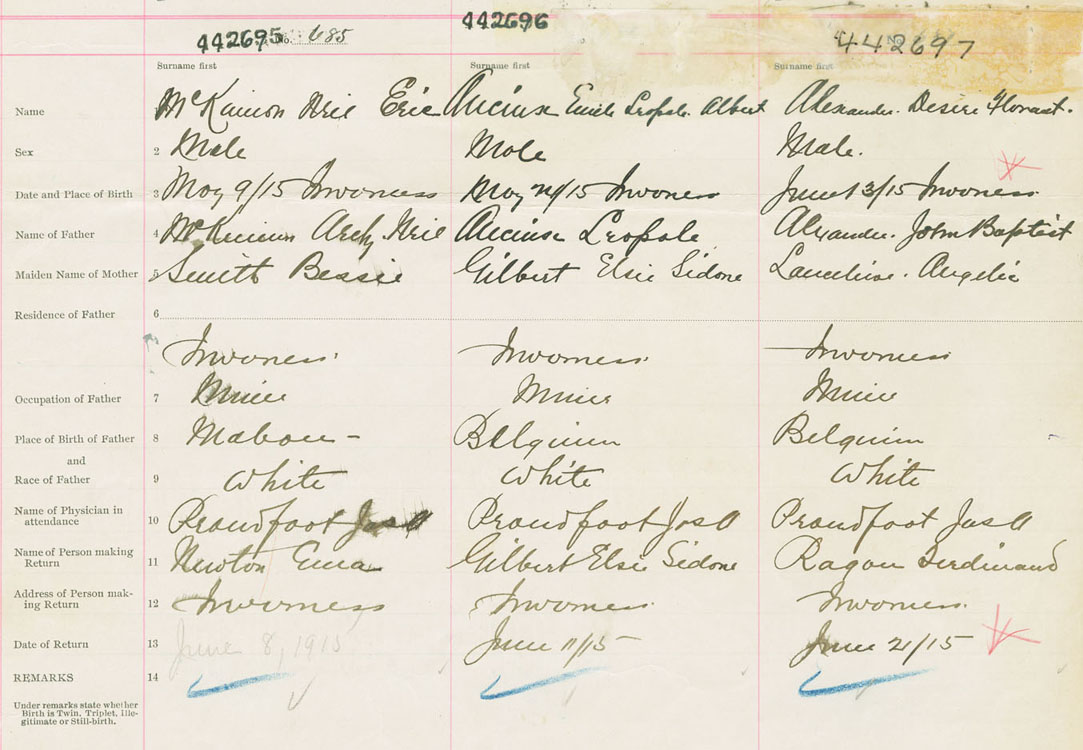 442695 No. 685 442696 442697 No.
Surname first Surname first Surname first
Name 1 McKinnon Neil Eric Emile Leopole Albert Alexander. Desire
Sex 2 Male Male Male.
Date and Place of Birth 3 May 9/15 Inverness May 24/15 Inverness June 13/15 Inverness
Name of Father 4 McKinnon Archy Neil Leopole Alexander. John Baptist
Maiden Name of Mother 5 Smith Bessie Gilbert Elsie Sidone Angelie
Residence of Father 6
Inverness Inverness Inverness
Occupation of Father 7 Miner Miner Miner
Place of Birth of Father 8 Mabou - Belgium Belgium
and
Race of Father 9 White White White
Name of Physician in
attendance 10 Proudfoot Jas A Proudfoot Jas A Proudfoot Jas A
Name of Person making
Return 11 Newton Ema Gilbert Elsie Sidone Ragou Ferdinand
Address of Person mak-
ing Return 12 Inverness Inverness Inverness
Date of Return 13 June 8, 1915 June 11/15 June 21/15
REMARKS 14
Under remarks state whether
Birth is Twin, Triplet, Ille-
gitimate or Still-birth.